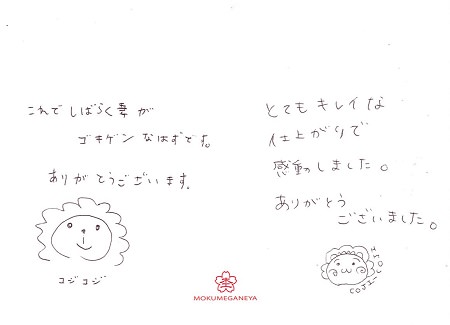 これでしばらく妻が
ゴキゲンなはずです。
ありがとうございます。
コジコジ
とてもキレイな
仕上がりで
感動しました。
ありがとう
ございました。
COJI-COJI
MOKUMEGANEYA